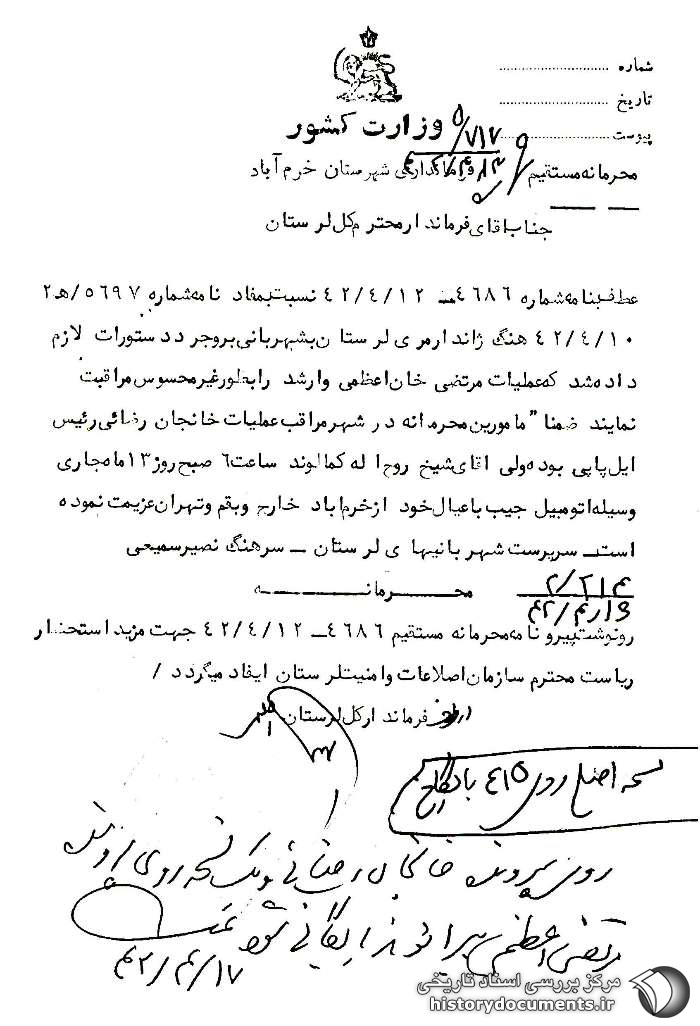 شماره ....................
تاریخ ....................
پیوست ....................
وزارت کشور
۵/۷۱۷
محرمانه مستقیم فرمانداری شهرستان خرم آباد
جناب آقای فرماندار محترم کل لرستان
عطف بنامه شماره ۴۶۸۶ ــ ۴۲/۴/۱۲ نسبت بمفاد نامه شماره ۵۶۹۷/هـ۲
۴۲/۴/۱۰ هنگ ژاندارمری لرستان بشهربانی بروجرد دستورات لازم
داده شد که عملیات مرتضی خان اعظمی وارشد را بطور غیر محسوس مراقبت
نمایند ضمنا" مامورین محرمانه در شهر مراقب عملیات خانجان رضائی رئیس
ایل پاپی بوده ولی آقای شیخ روح اله کمالوند ساعت ۶ صبح روز ۱۳ ماه جاری
وسیله اتومبیل جیب با عیال خود از خرم آباد خارج و بقم و تهران عزیمت نموده
است ــ سرپرست شهربانیهای لرستان ــ سرهنگ نصیر سمیعی
محــرمانــــــه
۲/۲۱۴
۴۲/۴/۱۶
رونوشت پیرو نامه محرمانه مستقیم ۴۶۸۶ ــ ۴۲/۴/۱۲ جهت مزید استحضار
ریاست محترم سازمان اطلاعات و امنیت لرستان ایفاد میگردد /
از طرف فرماندار کل لرستان
نسخه اصلی روی ۴۱۵ بایگانی
روی پرونده خانجان رضائی و یک نسخه روی پرونده
مرتضی اعظمی بیرانوند بایگانی شود
۴۲/۴/۱۷
مرکز بررسی اسناد تاریخی
historydocuments.ir